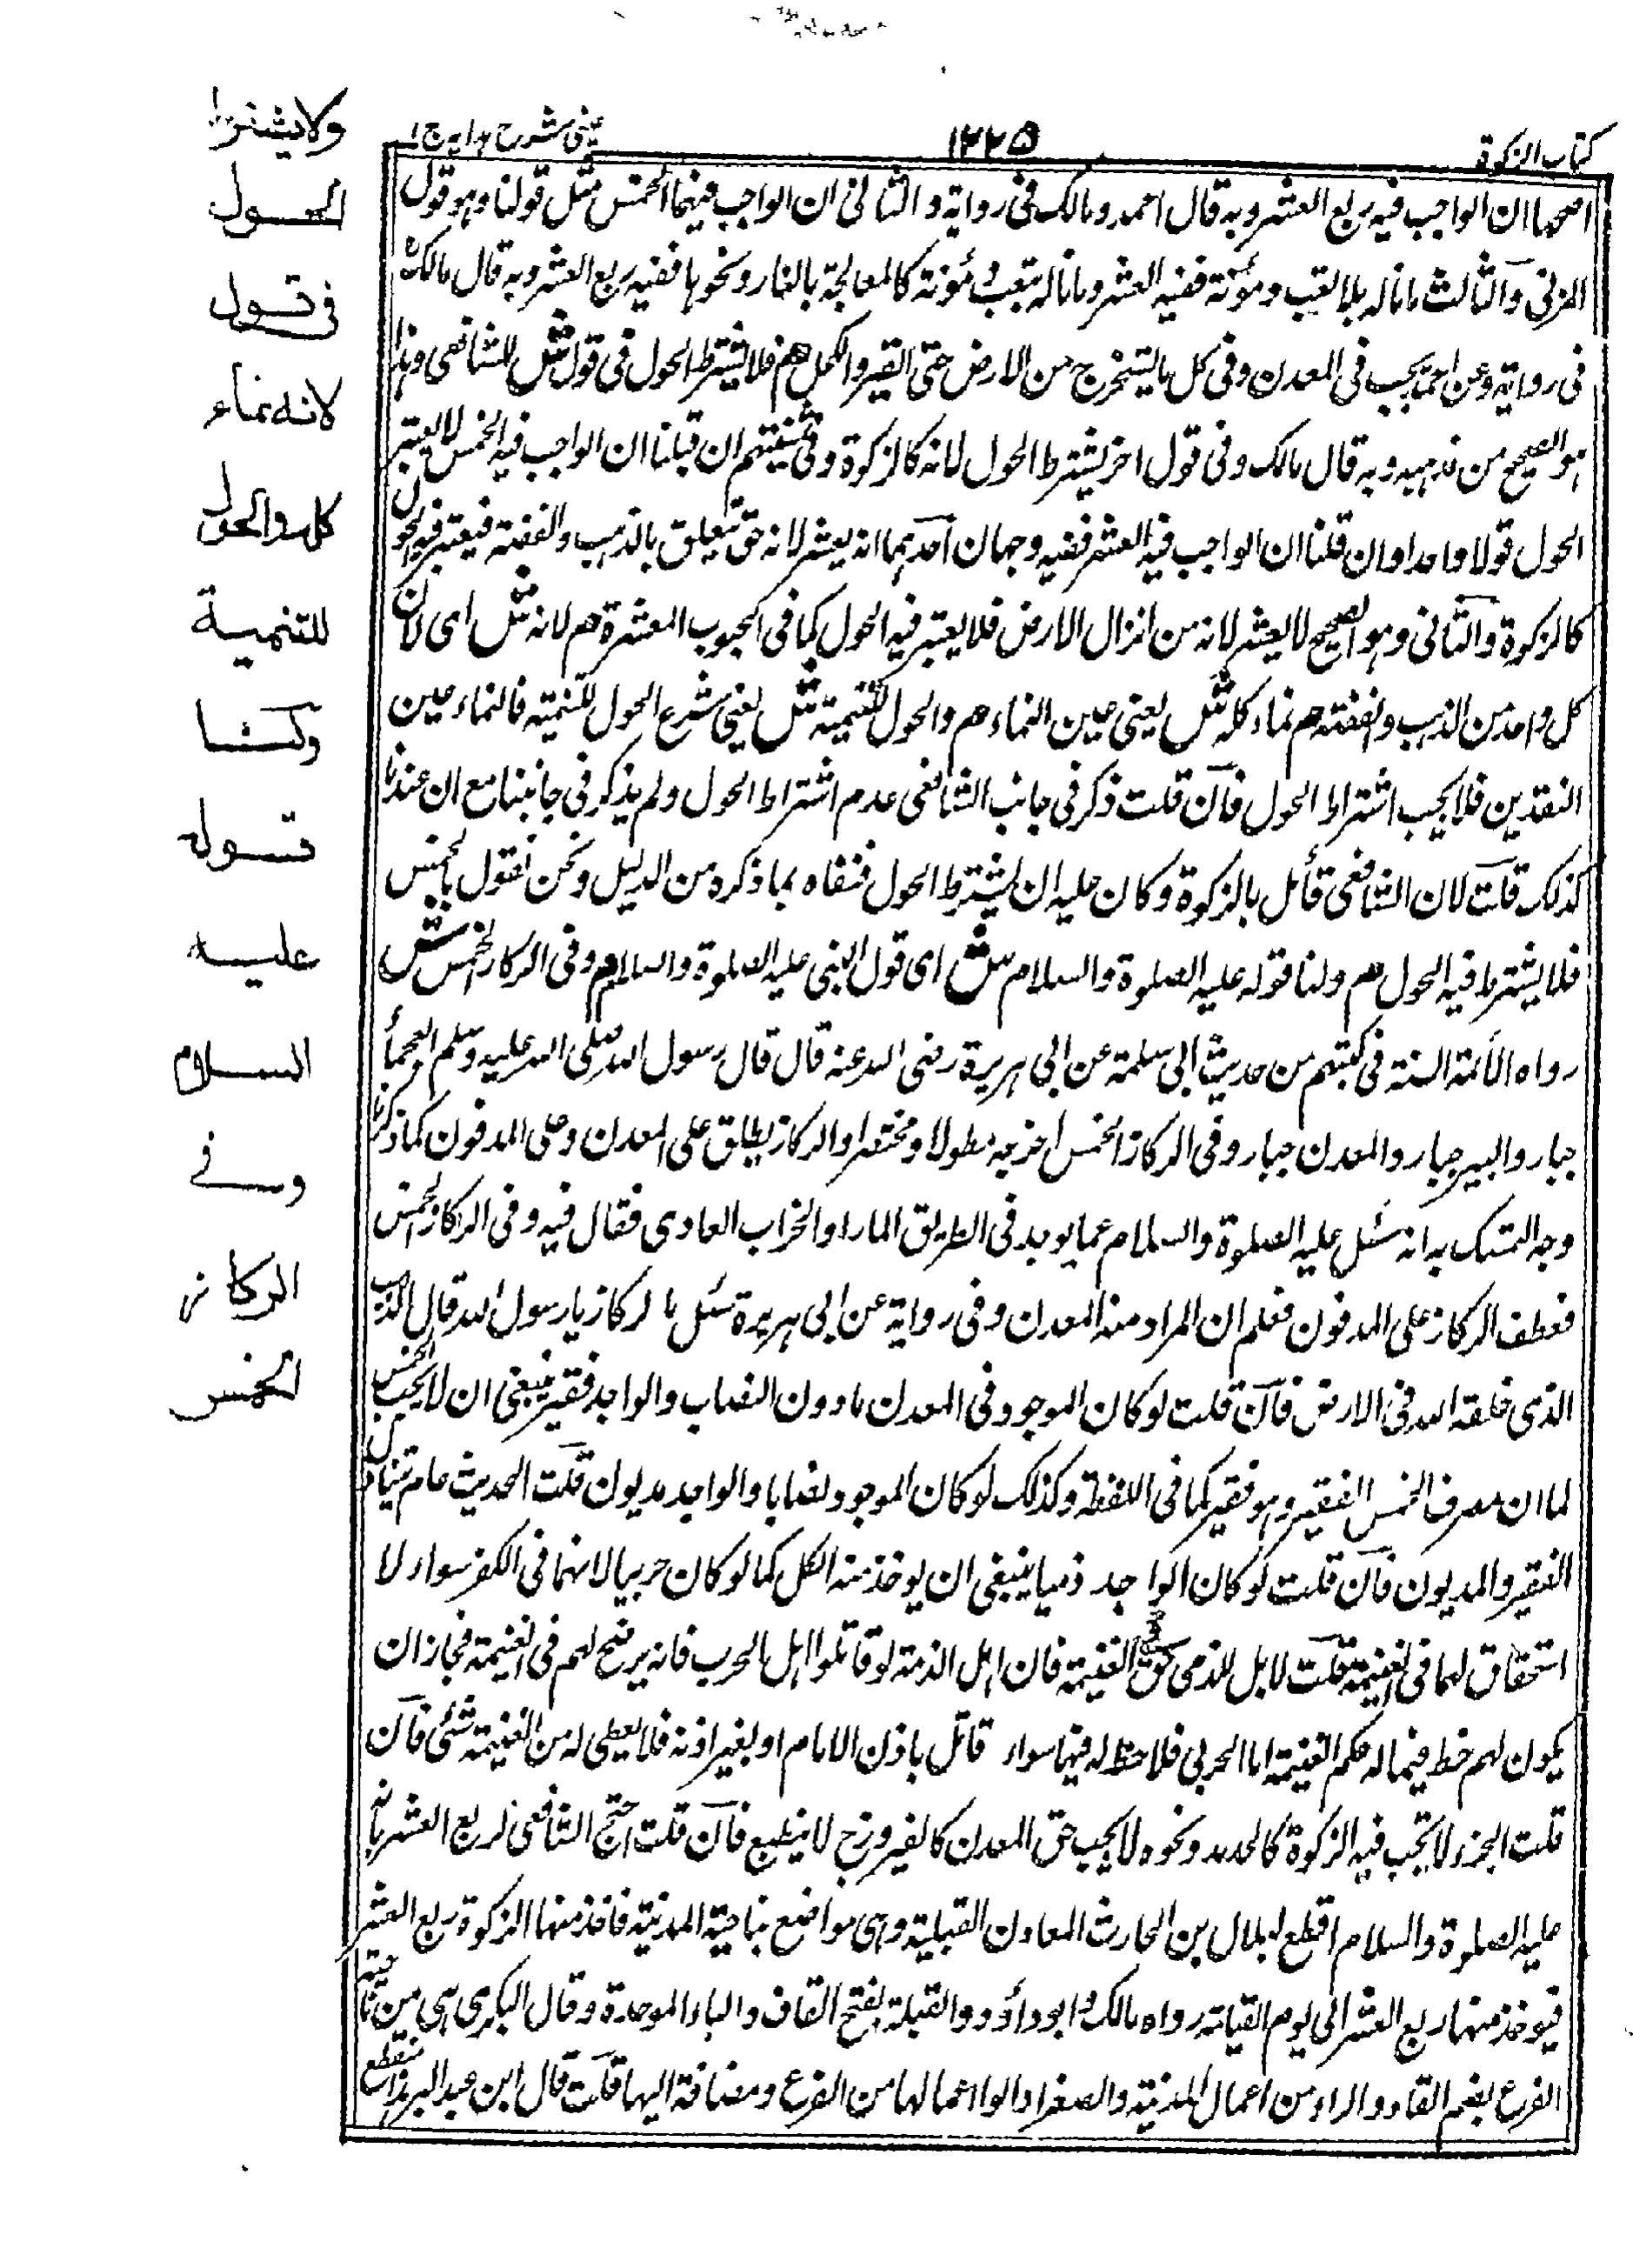 كتاب الزكوة
١٢٢٥
عينى شرح هدايه ج ١
اصحها ان الواجب فيه ربع العشر وبه قال احمد ومالك فى رواية و الثانى ان الواجب فيهما الخمس مثل قولنا وهو قول
المزنى والثالث ما ناله بلا تعب ومؤنة ففيه العشر وما ناله بتعب ومؤنة كالمعالجة بالنار ونحوها ففيه ربع العشر وبه قال مالك
فى رواية وعن احمد يجب فى المعدن وفى كل ما يستخرج من الارض حتى القير والكحل هم فلا يشترط الحول فى قول ش للشافعى وهذا
هو الصحيح من مذهبه وبه قال مالك وفى قول اخر يشترط الحول لانه كالزكوة وفى ان قلنا ان الواجب فيه الخمس لا يعتبر
الحول قولا واحدا وان قلنا ان الواجب فيه العشر ففيه وجهان احدهما انه يعشر لانه حق تتعلق بالذهب والفضة فيعتبر فيه الحول
كالزكوة والثانى وهو الصحيح لا يعشر لانه من انزال الارض فلا يعتبر فيه الحول كما فى الحبوب المعشرة هم لانه ش اى لان
كل واحد من الذهب والفضة هم نماء كله ش يعنى عين النماء هم والحول للتنمية ش يعنى شرع الحول للتنمية فالنماء عين
النقدين فلا يجب اشتراط الحول فان قلت ذكر فى جانب الشافعى عدم اشتراط الحول ولم يذكر فى جانبنا مع ان عندنا
كذلك قلت لان الشافعى قائل بالزكوة وكان عليه ان يشترط الحول فنفاه بما ذكره من الدليل ونحن نقول بالخمس
فلا يشترط فيه الحول هم ولنا قوله عليه الصلوة والسلام ش اى قول النبى عليه الصلوة والسلام هم وفى الركاز الخمس ش
رواه الائمة الستة فى كتبهم من حديث ابى سلمة عن ابى هريرة رضى الله عنه قال قال رسول الله صلى الله عليه وسلم العجماء
جبار والبير جبار والمعدن جبار وفى الركاز الخمس اخرجه مطولا ومختصرا والركاز يطلق على المعدن وعلى المدفون كما ذكرنا
وجه التمسك به انه سئل عليه الصلوة والسلام عما يوجد فى الطريق المار او الخراب العادى فقال فيه وفى الركاز الخمس
فعطف الركاز على المدفون فعلم ان المراد منه المعدن وفى رواية عن ابى هريرة سئل ما لركاز يا رسول الله قال الذهب
الذى خلقه الله فى الارض فان قلت لو كان الموجود فى المعدن ما دون النصاب والواجد فقير ينبغى ان لا يجب الخمس
لما ان مصرف الخمس الفقير وهو فقير كما فى اللقطة وكذلك لو كان الموجود نصابا والواجد مديون قلت الحديث عام تيناول
الفقير والمديون فان قلت لو كان الواجد ذميا ينبغى ان يوخذ منه الكل كما لو كان حربيا لانهما فى الكفر سواء لا
استحقاق لهما فى الغنيمة قلت لا بل للذمى حق الغنيمة فان اهل الذمة لو قاتلوا اهل الحرب فانه يرضخ لهم فى الغنيمة فجاز ان
يكون لهم حظ فيما له حكم الغنيمة اما الحربى فلا حظ له فيها سواء قاتل باذن الامام او بغير اذنه فلا يعطى له من الغنيمة شئى فان
قلت الجزء لا تجب فيه الزكوة كالحديد ونحوه لا يجب حق المعدن كالفيروزج لا ينطبع فان قلت احتج الشافعى لربع العشر بانه
عليه الصلوة والسلام اقطع لبلال بن الحارث المعادن القبلية وهى مواضع بناحية المدنية فاخذ منها الزكوة ربع العشر
فيوخذ منها ربع العشر الى يوم القيامة رواه مالك و ابو داؤد والقبلة بفتح القاف والباء الموحدة وقال البكرى هى من ناحية
الفرع بضم الفاء والراء من اعمال المدنية والصغراء اعمالها من الفرع ومضافة اليها قلت قال ابن عبد البر هذا منقطع
ولا يشترط
الحول
فى قول
لانه نماء
كله والحول
للتنمية
ولنا
قوله
عليه
السلام
وفى
الركاز
الخمس